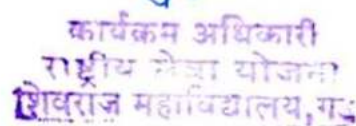 कार्यक्रम अधिकारी
राष्ट्रीय सेवा योजना
शिवराज महाविद्यालय,